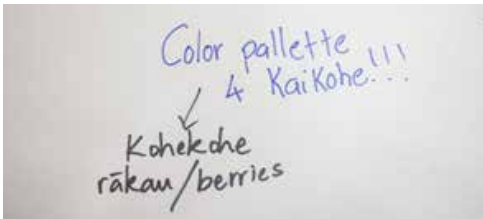 Color pallette
4 Kaikohe!!!
Kohekohe
rākau/berries